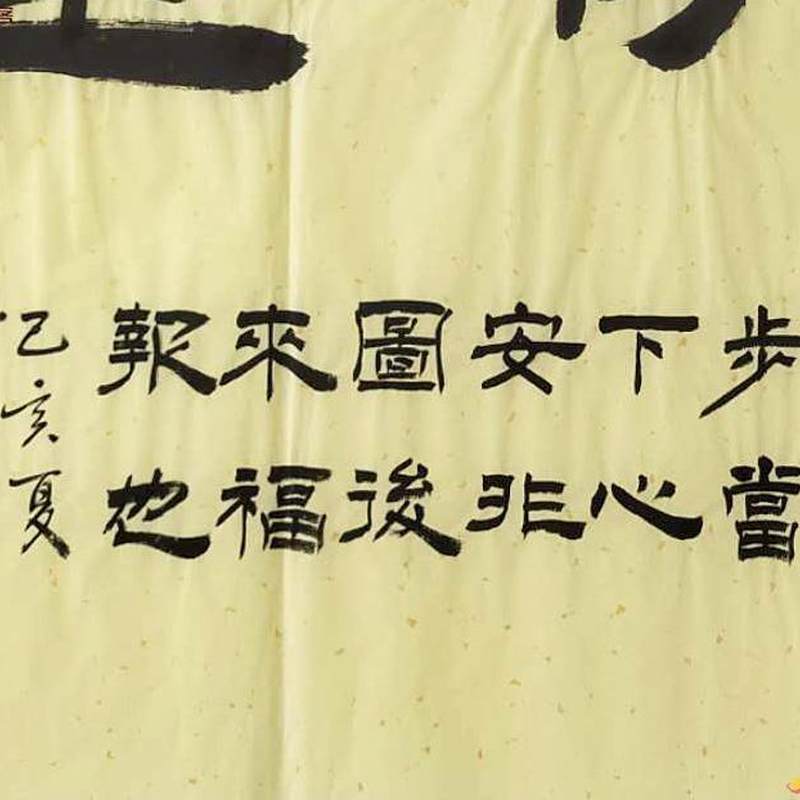 步當
下心
安非
圖後
來福
報也
己亥夏